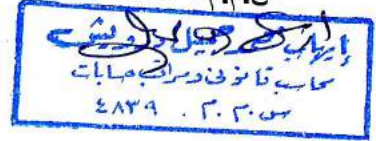 إيهاب جميل درويش
محاسب قانونى ومراقب حسابات
س.م.م. ٤٨٣٩